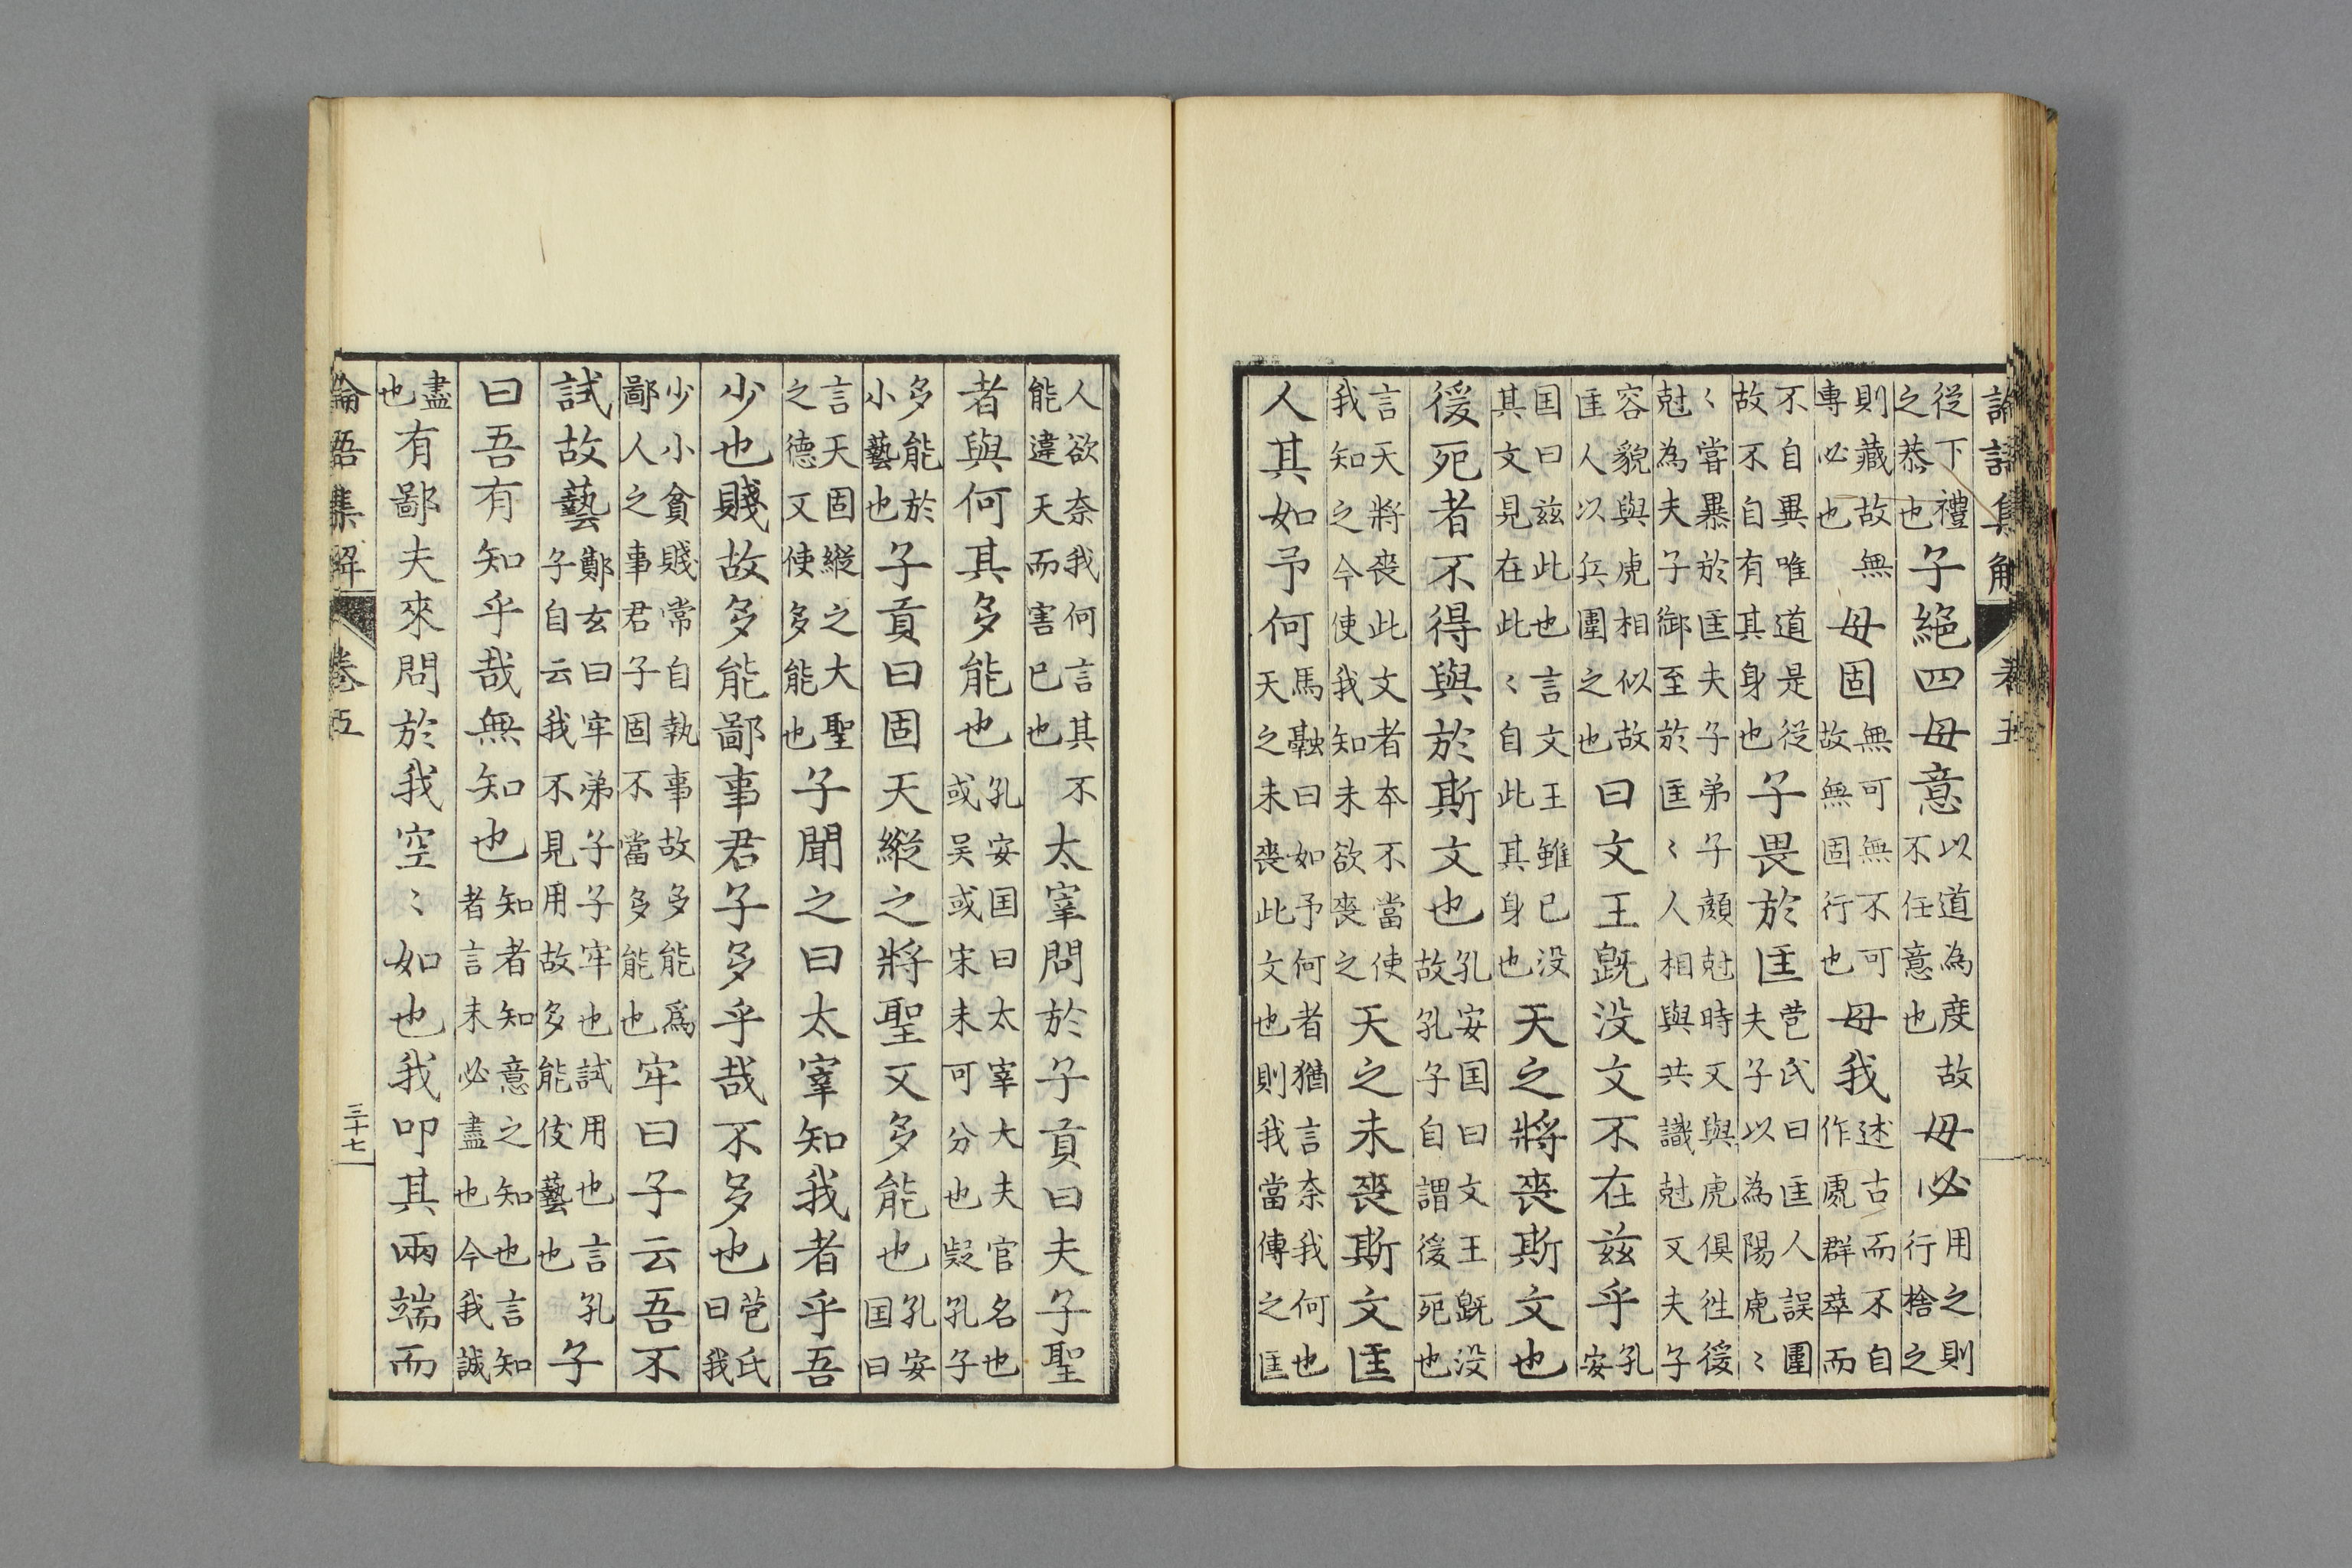 論語集解 卷五
從下禮之恭也子絕四毋意以道為度故不任意也毋必用之則行捨之
則藏故無專必也毋固無可無不可故無固行也毋我述古而不自作處群萃而
不自異唯道是從故不自有其身也子畏於匡苞氏曰匡人誤圍夫子以為陽虎〻
〻嘗暴於匡夫子弟子顏尅時又與虎俱往後尅為夫子御至於匡〻人相與共識尅又夫子
容貌與虎相似故匡人以兵圍之也曰文王既没文不在茲乎孔安
国曰茲此也言文王雖已没其文見在此〻自此其身也天之將喪斯文也
後死者不得與於斯文也孔安国曰文王既没故孔子自謂後死也
言天將喪此文者本不當使我知之今使我知未欲喪之天之未喪斯文匡
人其如予何馬融曰如予何者猶言奈我何也天之未喪此文也則我當傳之匡
人欲奈我何言其不能違天而害已也太宰問於子貢曰夫子聖
者與何其多能也孔安国曰太宰大夫官名也或吴或宋未可分也疑孔子
多能於小藝也子貢曰固天縱之將聖又多能也孔安国曰
言天固縱之大聖之德又使多能也子聞之曰太宰知我者乎吾
少也賤故多能鄙事君子多乎哉不多也苞氏曰我
少小貧賤常自執事故多能爲鄙人之事君子固不當多能也牢曰子云吾不
試故藝鄭玄曰牢弟子子牢也試用也言孔子自云我不見用故多能伎藝也子
曰吾有知乎哉無知也知者知意之知也言知者言未必盡也今我誠
盡也有鄙夫來問於我空〻如也我叩其兩端而
論語集解 卷五 三十七